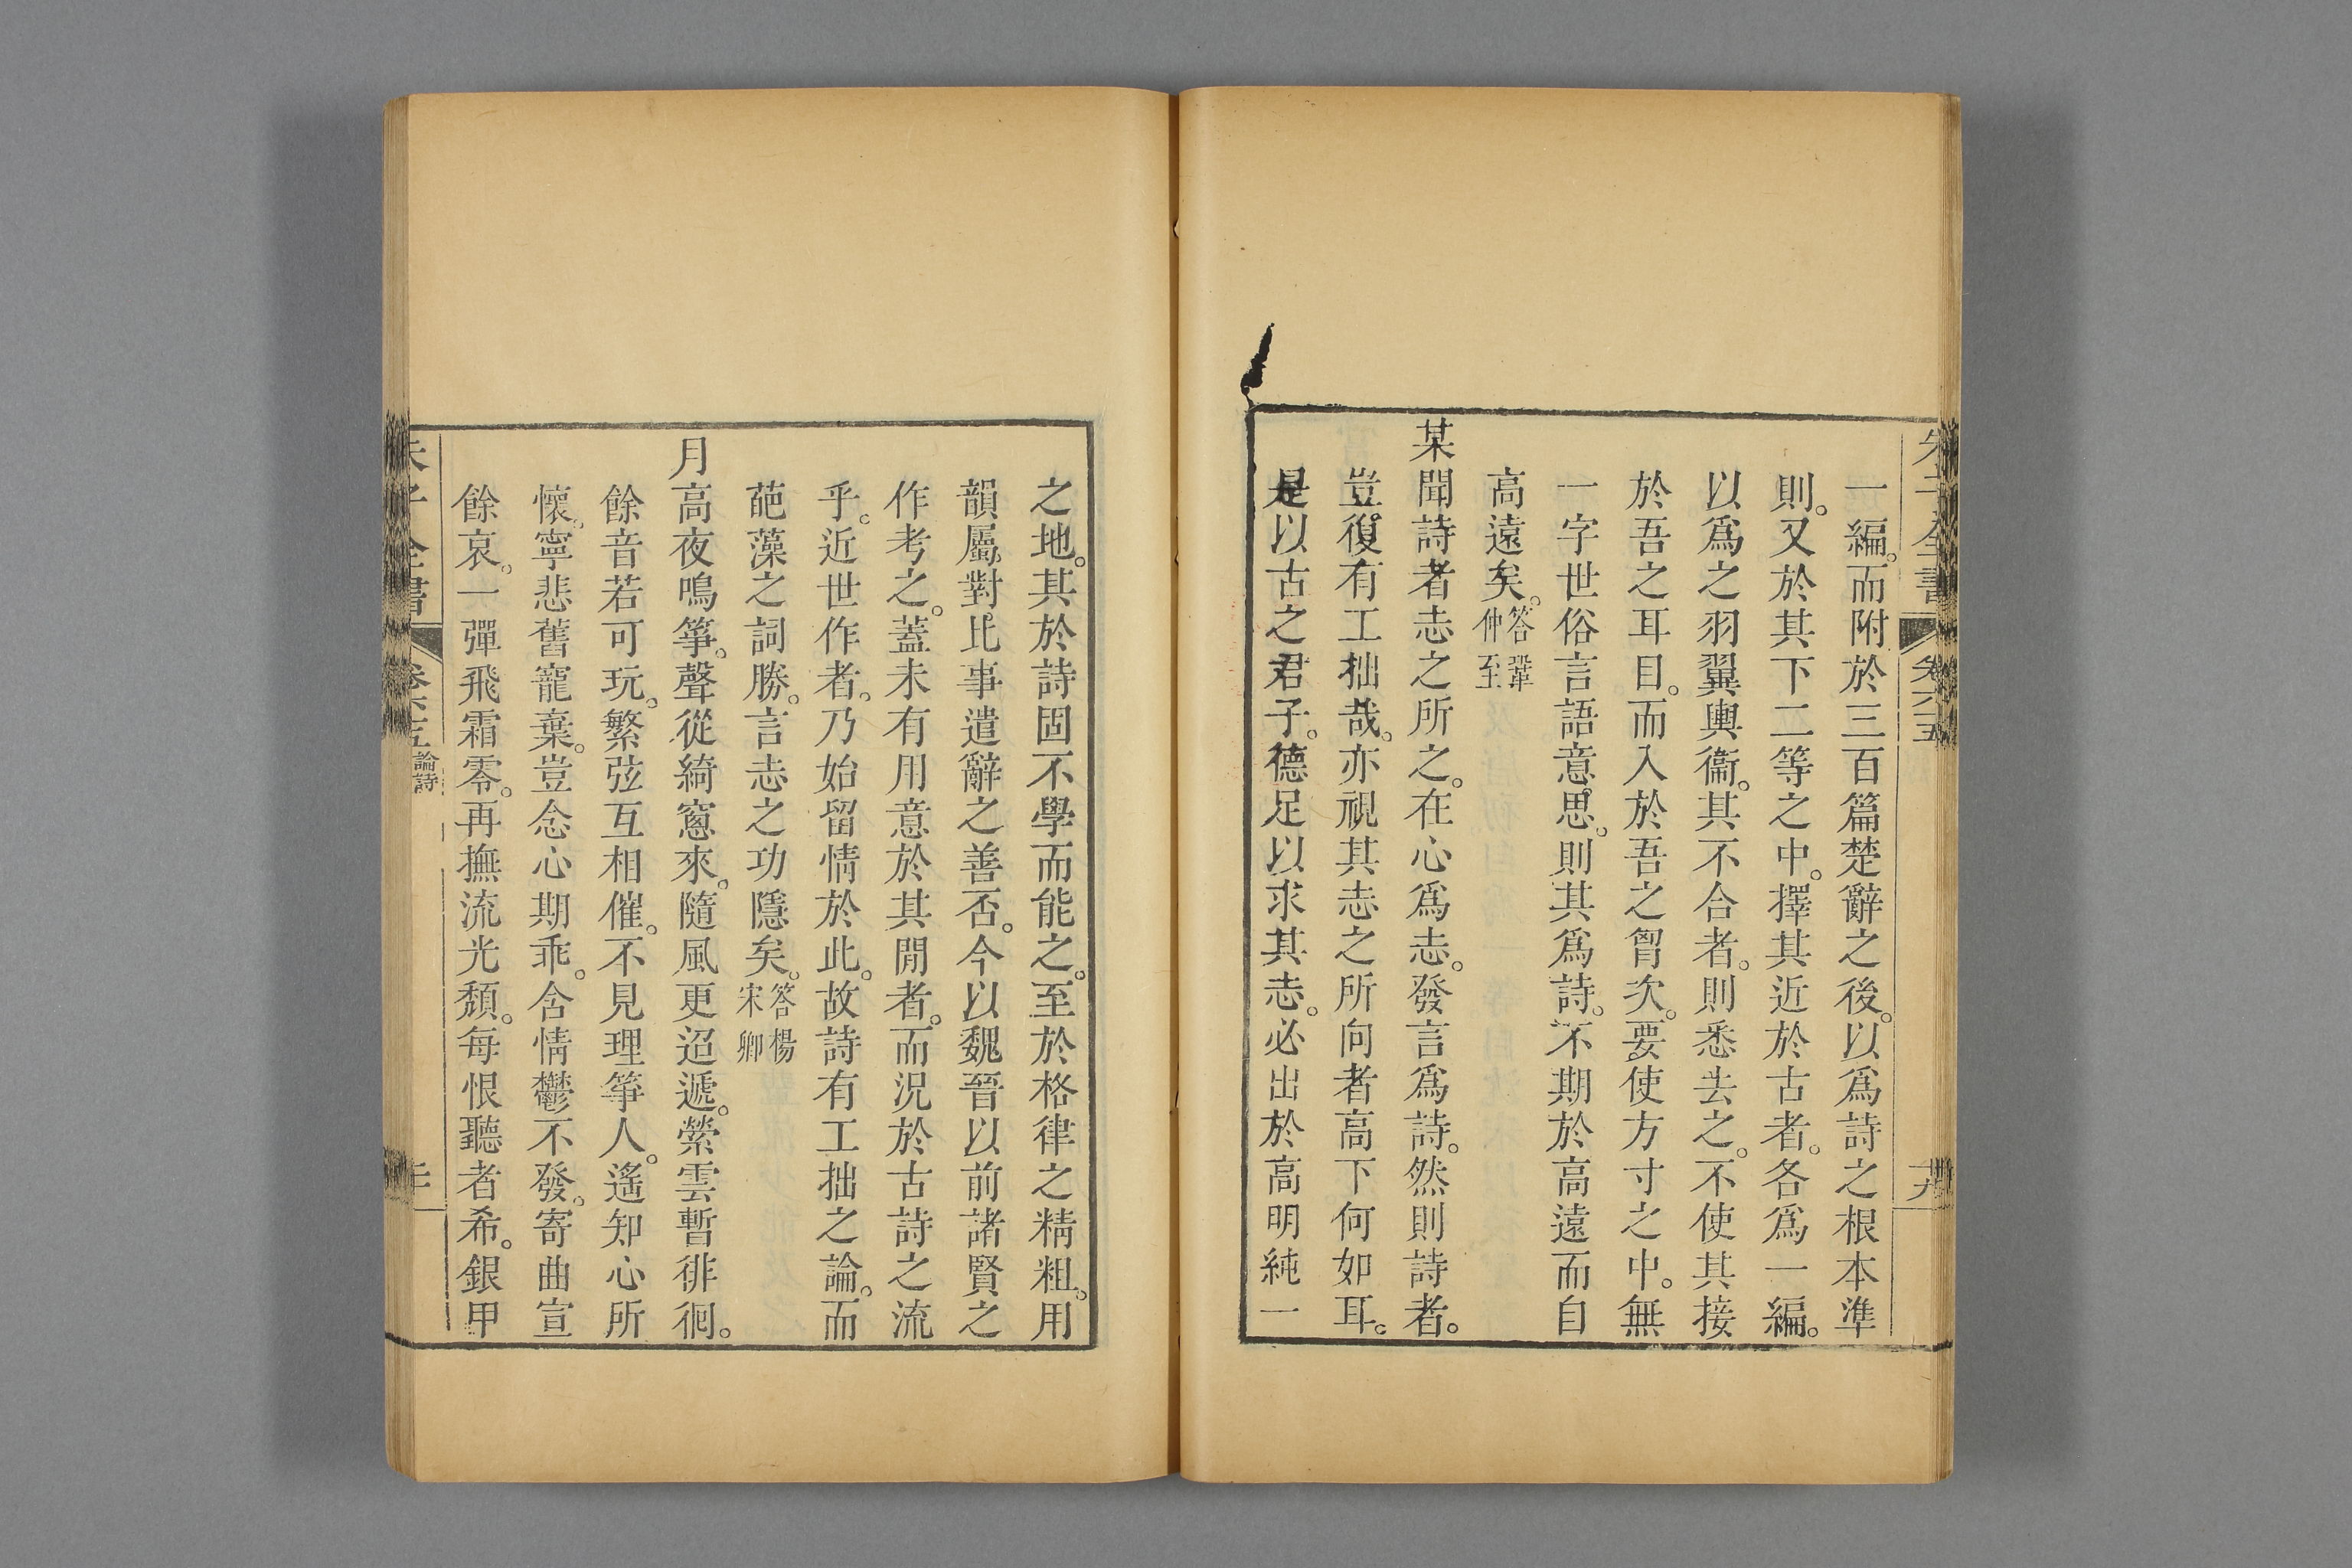 朱子全書 卷六十五 十九
一編。而附於三百篇楚辭之後。以爲詩之根本準
則。又於其下二等之中。擇其近於古者。各爲一編。
以爲之羽翼輿衞。其不合者。則悉去之。不使其接
於吾之耳目。而入於吾之胷次。要使方寸之中。無
一字世俗言語意思。則其爲詩。不期於高遠而自
高遠矣。答鞏仲至
某聞詩者志之所之。在心爲志。發言爲詩。然則詩者。
豈復有工拙哉。亦視其志之所向者高下何如耳。
是以古之君子。德足以求其志。必出於高明純一
之地。其於詩固不學而能之。至於格律之精粗。用
韻屬對比事遣辭之善否。今以魏晉以前諸賢之
作考之。蓋未有用意於其閒者。而況於古詩之流
乎。近世作者。乃始留情於此。故詩有工拙之論。而
葩藻之詞勝。言志之功隱矣。答楊宋卿
月高夜鳴箏。聲從綺窻來。隨風更迢遞。縈雲暫徘徊。
餘音若可玩。繁弦互相催。不見理箏人。遙知心所
懷。寧悲舊寵棄。豈念心期乖。含情鬱不發。寄曲宣
餘哀。一彈飛霜零。再撫流光頹。每恨聽者希。銀甲
朱子全書 卷六十五 論詩